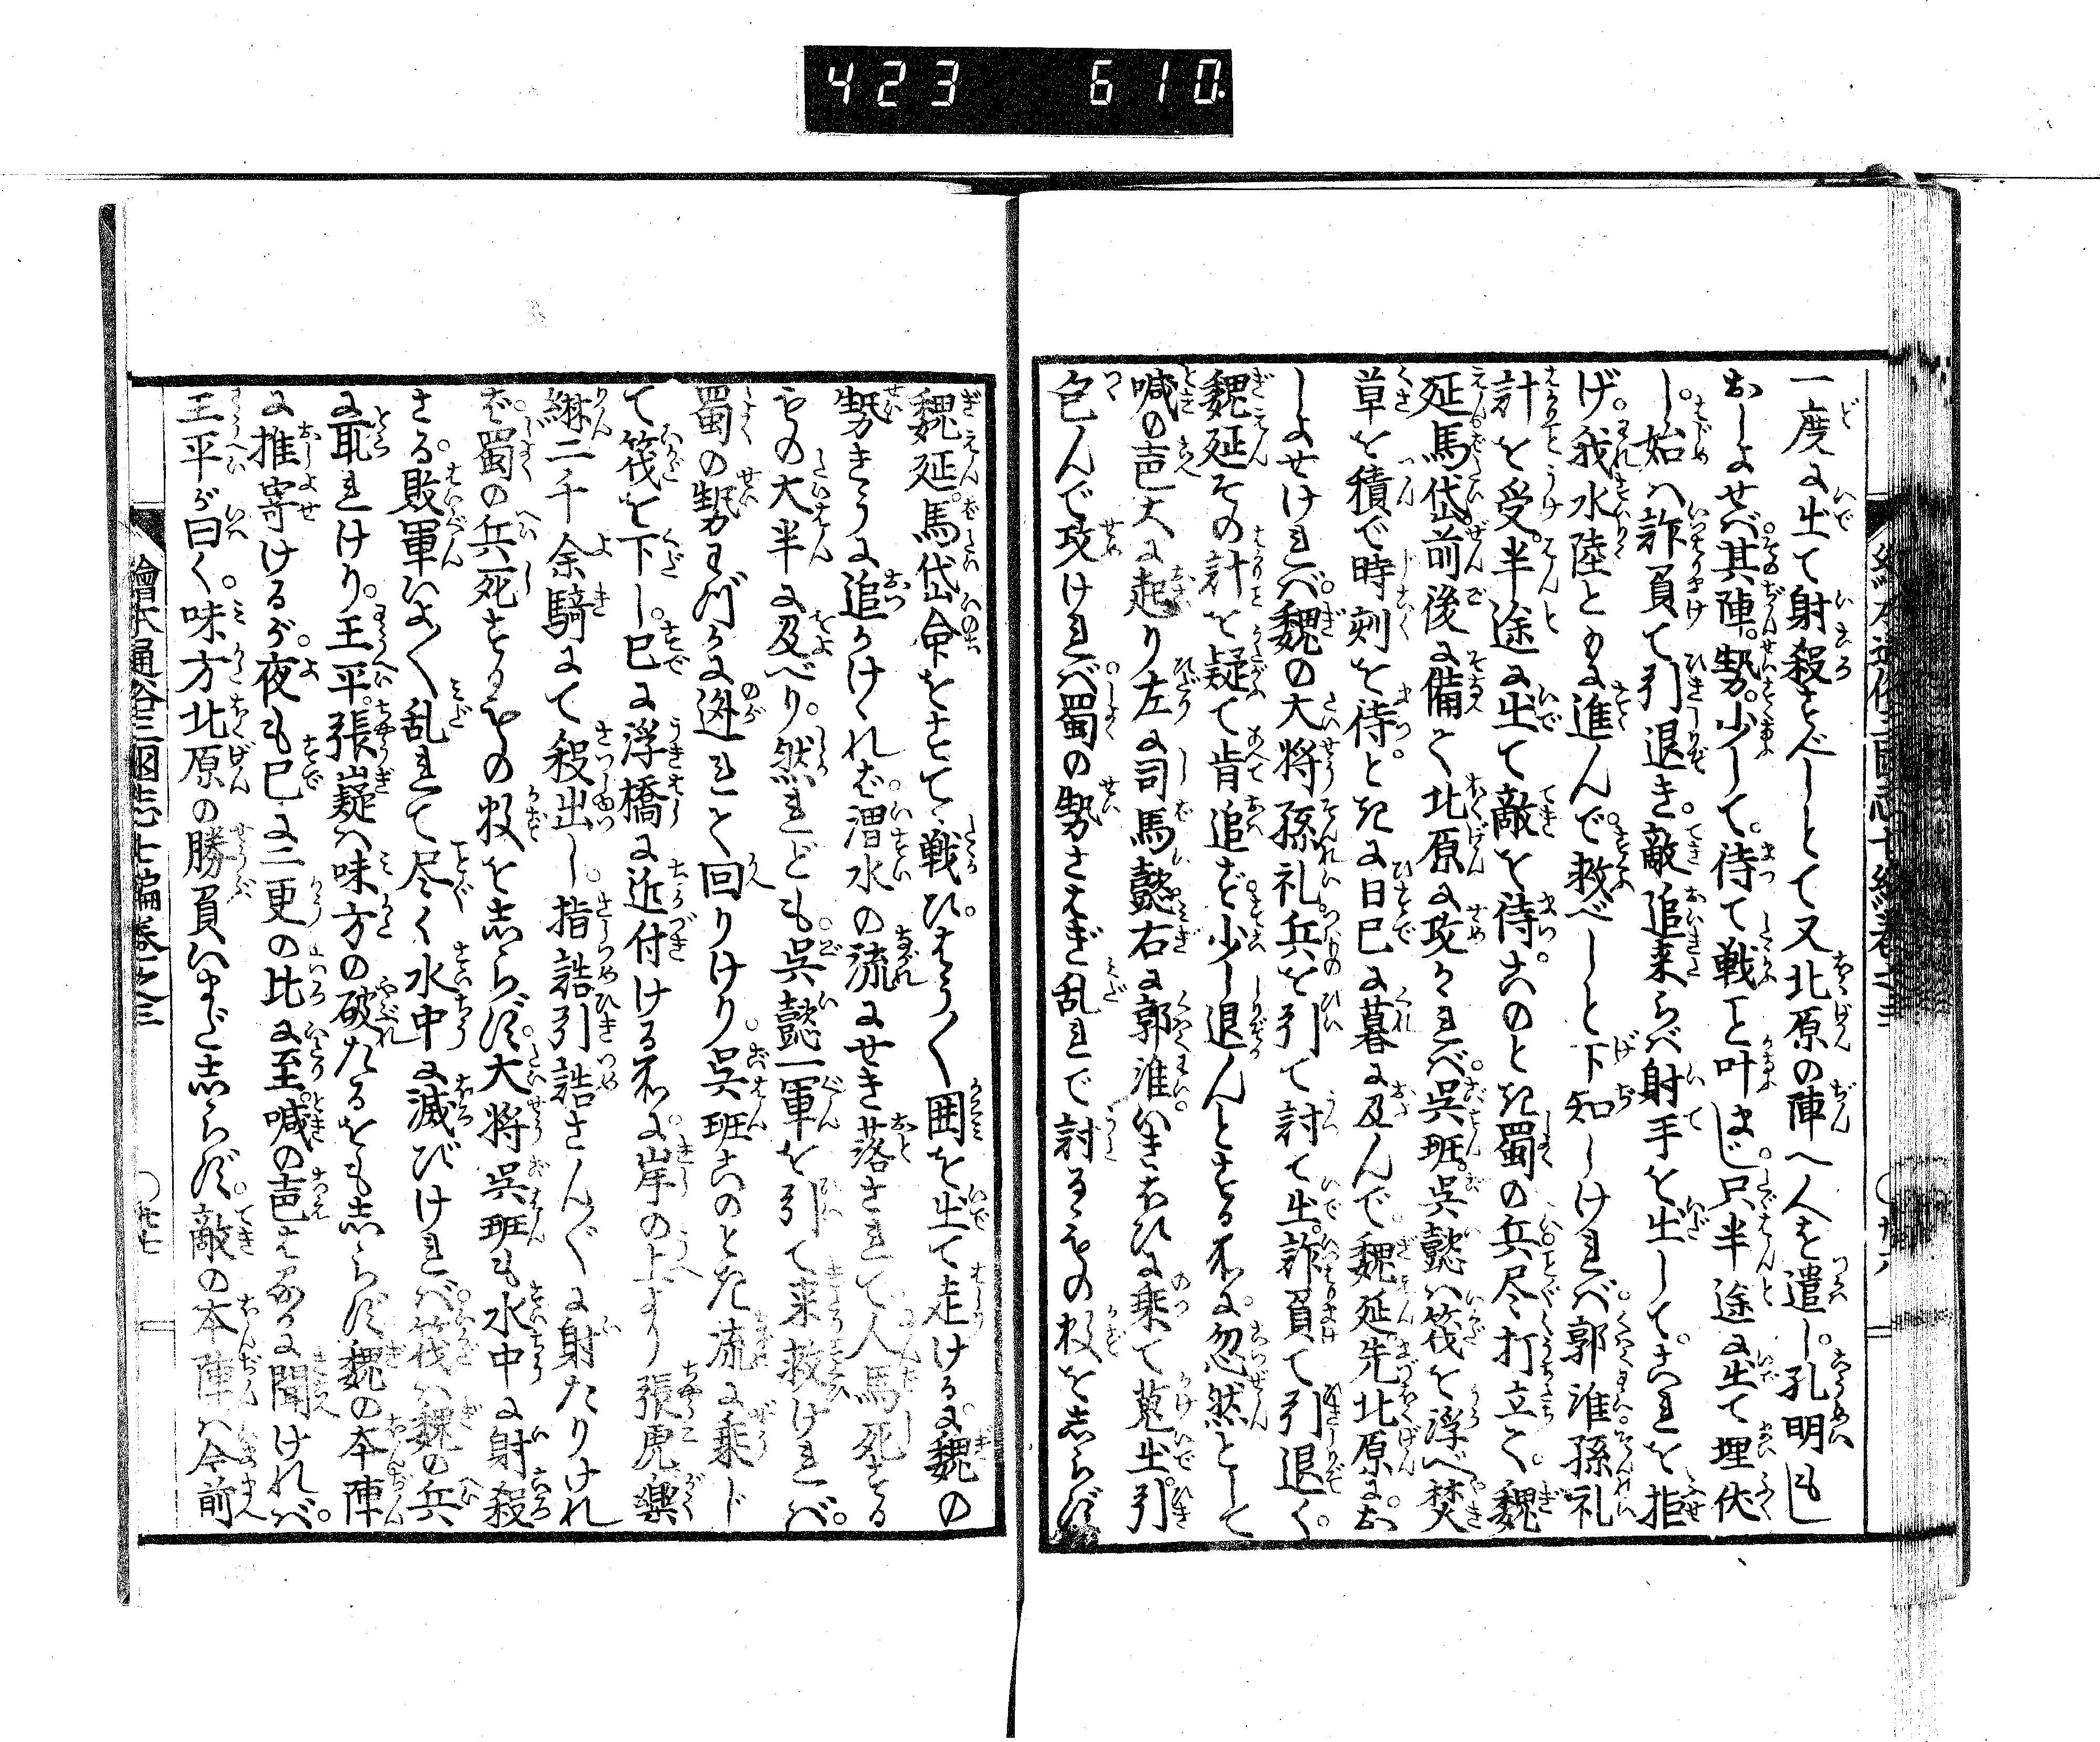 423 610
一度に出て射殺すべしとて又北原の陣へ人を遣し孔明もし
おしよせバ其陣勢少して待て戦こと叶まじ只半途に出て埋伏
し始ハ詐負て引退き敵追来らバ射手を出してこれを拒
げ我水陸ともに進んで救べしと下知しけれバ郭淮孫礼
計を受半途に出て敵を待このとき蜀の兵尽く打立て魏
延馬岱前後に備て北原に攻かゝれバ呉班呉懿ハ筏を浮べ焚
草を積で時刻を待ときに日已に暮に及んで魏延先北原にお
しよせけれバ魏の大将孫礼兵を引て討て出詐負て引退く
魏延その計を疑て肯追ず少し退んとする所に忽然として
喊の声大に起り左に司馬懿右に郭淮いきおひに乗て蒐出引
包んで攻けれバ蜀の勢さえぎ乱れて討るゝもの数を志らず
魏延馬岱命をすてゝ戦ひやう〳〵囲を出て走けるに魏の
勢きうに追かけゝれば渭水の流にせき落されて人馬死する
もの大半に及べり然れども呉懿一軍を引て来救けれバ
蜀の勢わづかに迯れて回りけり呉班このとき流に乗じ
て筏を下し已に浮橋に近付ける所に岸の上より張虎樂
綝二千余騎にて殺出し指詰引詰さんざんに射たりけれ
ば蜀の兵死するもの数を志らず大将呉班も水中に射殺
さる敗軍いよ〳〵乱れて尽く水中に滅びけれバ筏ハ魏の兵
に取れけり王平張嶷ハ味方の破たるをも志らず魏の本陣
に推寄けるが夜も已に二更の比に至喊の声はるかに聞けれバ
王平が曰く味方北原の勝負いまだ志らず敵の本陣ハ今前
繪本通俗三國志七編巻之三